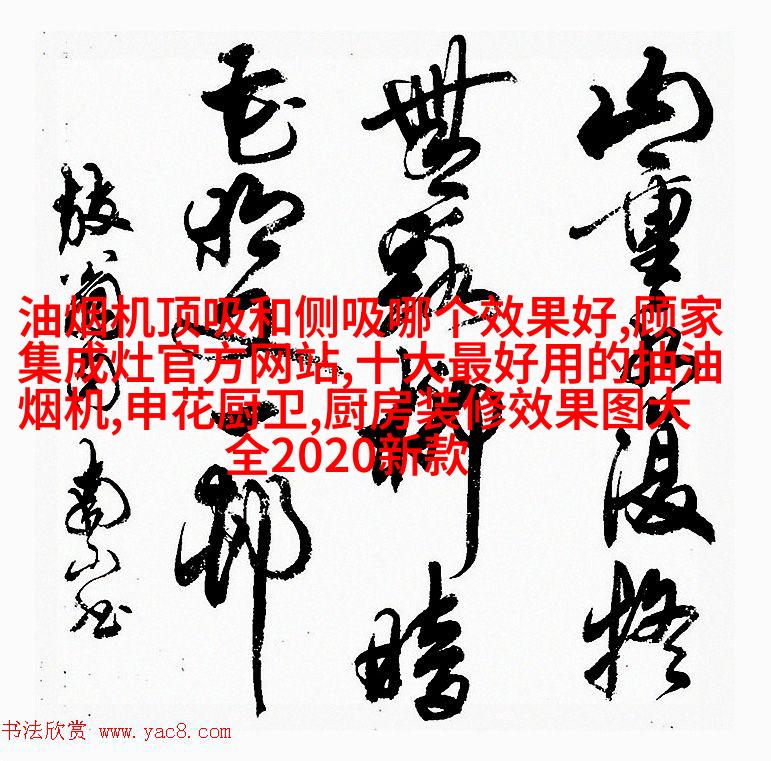 山重水復疑
無路柳暗
花明又一村
放翁
油烟机顶吸和侧吸哪个效果好,顾家
集成灶官方网站,十大最好用的抽油
烟机,申花厨卫,厨房装修效果图大
全2020新款
书法欣赏 www.yac8.com